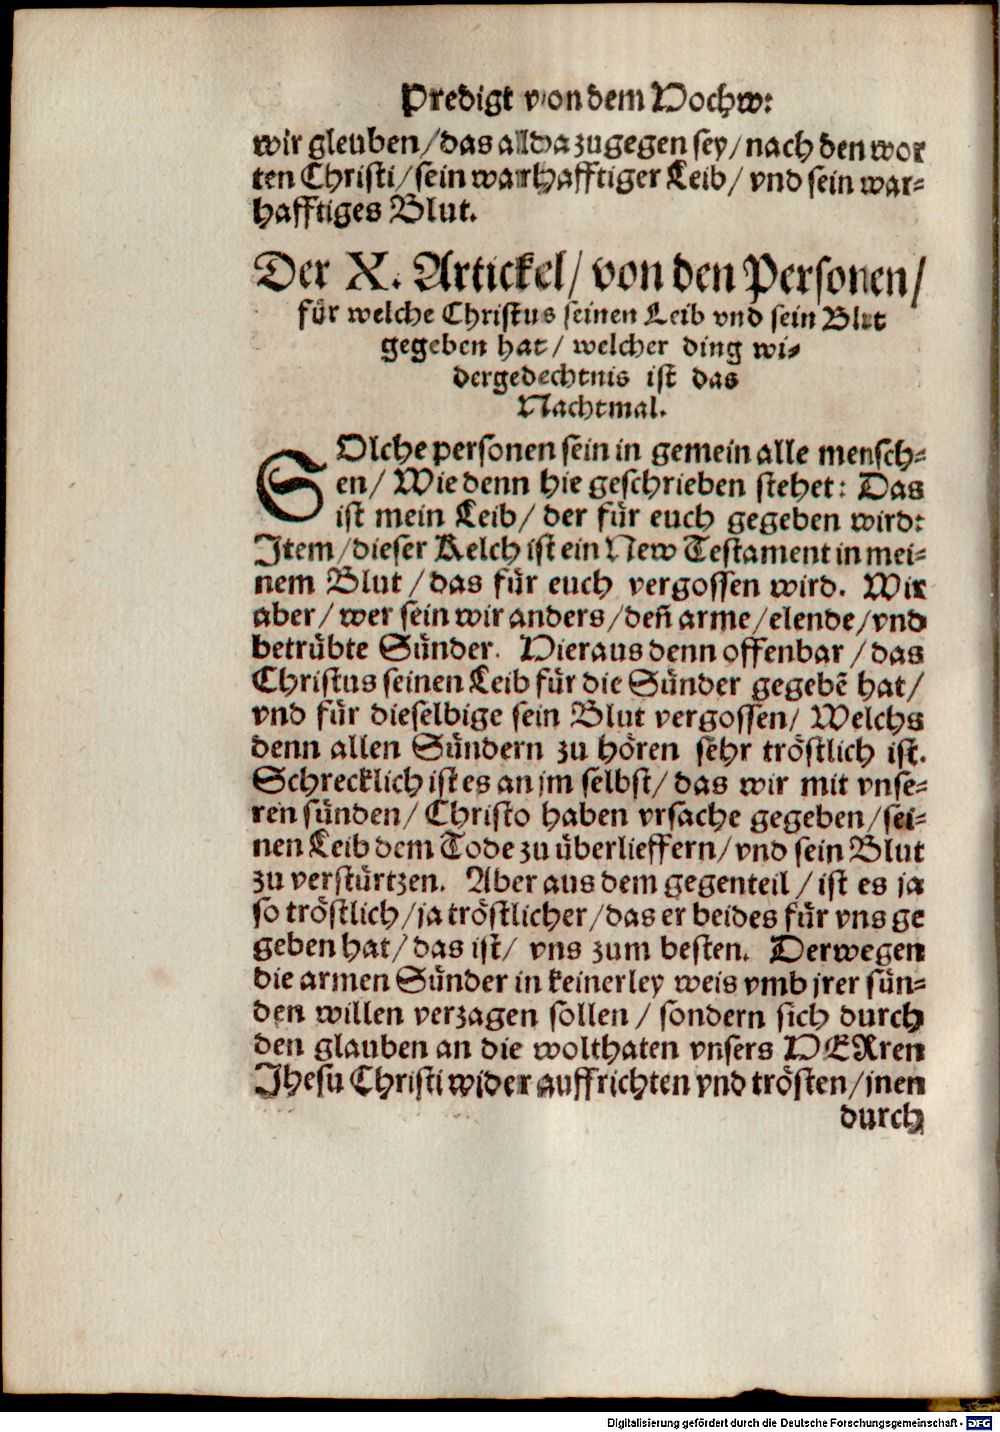 Predigt von dem Hochw:
wir gleuben/das allda zugegen sey/nach den wor
ten Christi/sein warhafftiger Leib/vnd sein war-
hafftiges Blut.
Der X. Artickel/von den Personen/
für welche Christus seinen Leib vnd sein Blut
gegeben hat/welcher ding wi-
dergedechtnis ist das
Nachtmal.
SOlche personen sein in gemein alle mensch-
en/Wie denn hie geschrieben stehet: Das
ist mein Leib/der für euch gegeben wird:
Item/dieser Kelch ist ein New Testament in mei-
nem Blut/das für euch vergossen wird. Wir
aber/wer sein wir anders/deñ arme/elende/vnd
betrübte Sünder. Hieraus denn offenbar/das
Christus seinen Leib für die Sünder gegebẽ hat/
vnd für dieselbige sein Blut vergossen/Welchs
denn allen Sündern zu hören sehr tröstlich ist.
Schrecklich ist es an jm selbst/das wir mit vnse-
ren sünden/Christo haben vrsache gegeben/sei-
nen Leib dem Tode zu überlieffern/vnd sein Blut
zu verstürtzen. Aber aus dem gegenteil/ist es ja
so tröstlich/ja tröstlicher/das er beides für vns ge
geben hat/das ist/vns zum besten. Derwegen
die armen Sünder in keinerley weis vmb jrer sün-
den willen verzagen sollen/sondern sich durch
den glauben an die wolthaten vnsers HERren
Jhesu Christi wider auffrichten vnd trösten/jnen
durch
Digitalisierung gefördert durch die Deutsche Forschungsgemeinschaft - DFG